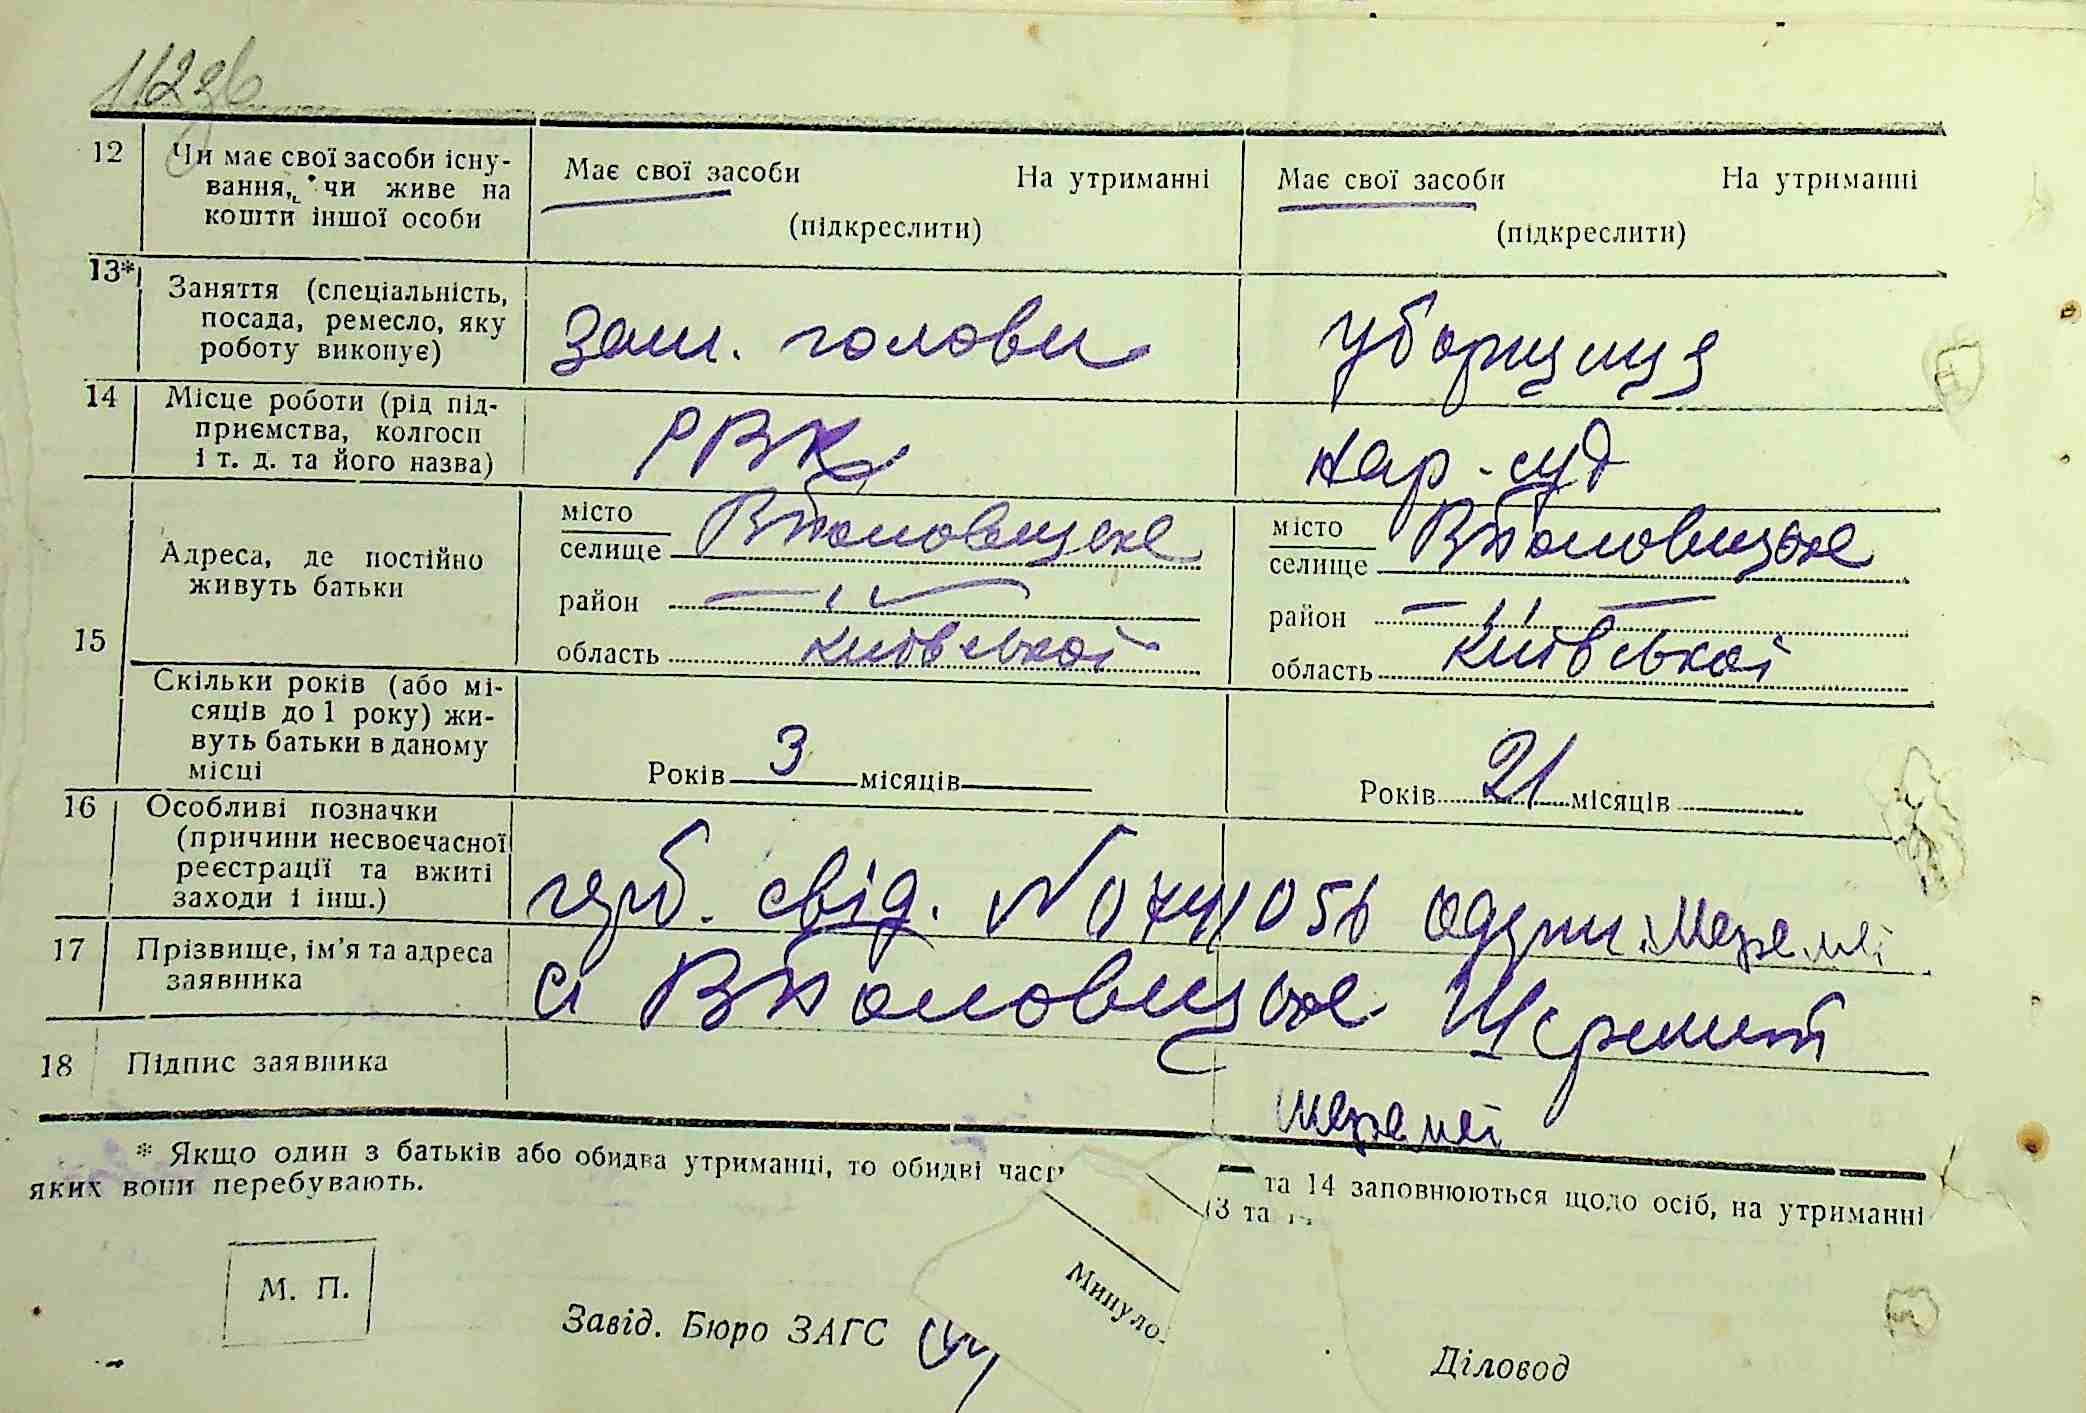 112зв
12 Чи має свої засоби існу-
вання, чи живе на
кошти іншої особи
Має свої засоби На утриманні
(підкреслити)
Має свої засоби На утриманні
(підкреслити)
13* Заняття (спеціальність,
посада, ремесло, яку
роботу виконує)
Зам. голови
уборщиця
14 Місце роботи (рід під-
приємства, колгосп
і т. д. та його назва)
РВК
нар. суд
15 Адреса, де постійно
живуть батьки
місто
селище
район — ,, —
область Київської
місто
селище
район — ,, —
область Київської
Скільки років (або мі-
сяців до 1 року) жи-
вуть батьки в даному
місці
Років 3 місяців
Років 21 місяців
16 Особливі позначки
(причини несвоєчасної
реєстрації та вжиті
заходи і інш.)
герб. свід. №
17 Прізвище, ім'я та адреса
заявника
18 Підпис заявника
* Якщо один з батьків або обидва утриманці, то обидві
та 14 заповнюються щодо осіб, на утриманні
яких вони перебувають.
13 та
М. П.
Минуло
Завід. Бюро ЗАГС
Діловод